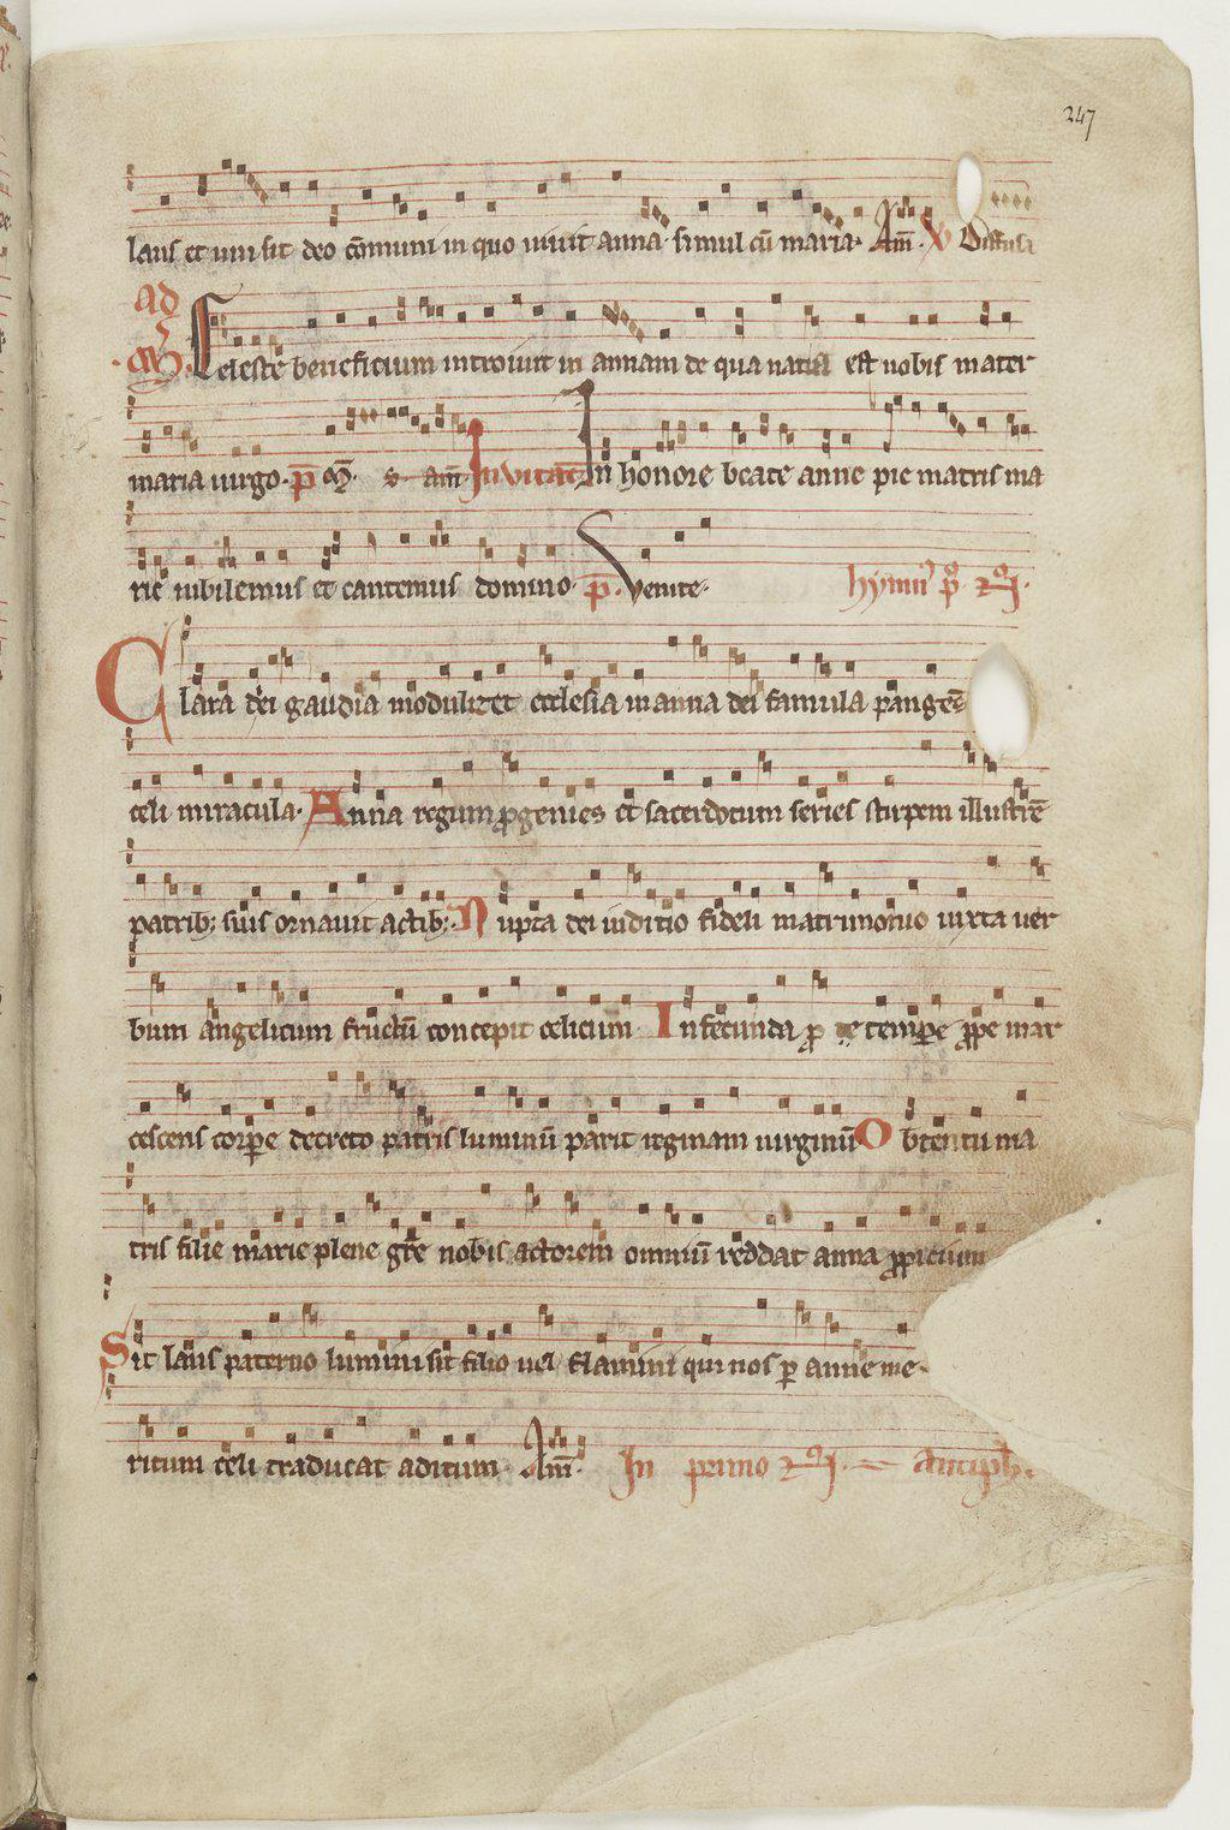 247
laus et uni sit deo cōmuni in quo uiuit anna simul cū maria. Am̄. V Diffusa
ad
M̄. Celeste beneficium introiuit in annam de qua nata est nobis mater
maria uirgo. p̄ M̄. s. am̄. Inuitat̄ In honore beate anne pie matris ma
rie iubilemus et cantemus domino. p̄. Venite. hymn᷒ p̊
Clara dei gaudia modulizet ecclesia in anna dei famula pangēs
celi miracula. Anna regum ꝓgenies et sacerdotum series stirpem illustrē
patrib; suis ornauit actib;. Nupta dei iuditio fideli matrimonio iuxta uer
bum angelicum fructū concepit celicum. Infecunda ꝓ de temꝑe ꝓpe mar
cescens corꝑe decreto patris luminū parit reginam uirginū Obtentu ma
tris filie marie plene gr̄e nobis actorem omniū reddat anna ꝓpicium
Sit laus paterno lumini sit filio uel flamini qui nos ꝑ anne me
ritum celi traducat aditum. Am̄. In primo antiph.